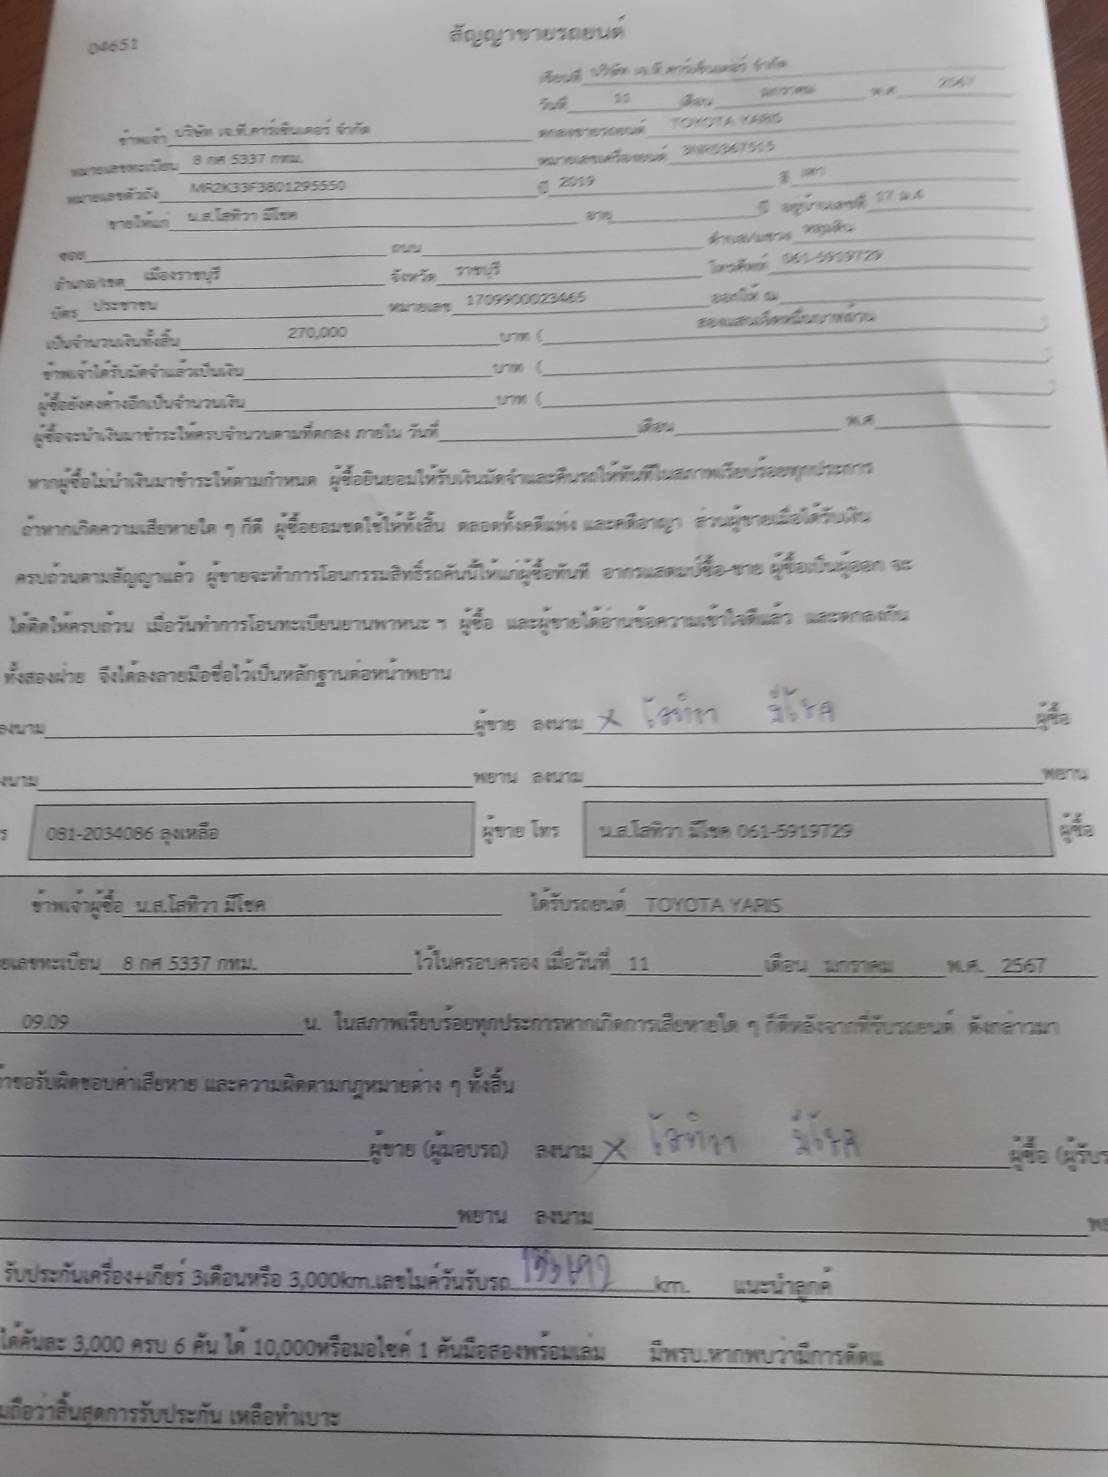 04651
สัญญาขายรถยนต์
เขียนที่ บริษัท เจ.ที.คาร์เซ็นเตอร์ จำกัด
วันที่ 11 เดือน มกราคม พ.ศ. 2567
ข้าพเจ้า บริษัท เจ.ที.คาร์เซ็นเตอร์ จำกัด ตกลงขายรถยนต์ TOYOTA YARIS
หมายเลขทะเบียน 8 กศ 5337 กทม. หมายเลขเครื่องยนต์
หมายเลขตัวถัง MR2K33F3801295550 ปี 2019 สี เทา
ขายให้แก่ น.ส.โสทิวา มีโชค อายุ ปี อยู่บ้านเลขที่
ซอย ถนน ตำบล/แขวง
อำเภอ/เขต เมืองราชบุรี จังหวัด ราชบุรี โทรศัพท์ 061-5919729
บัตร ประชาชน หมายเลข 1709900023465 ออกให้ ณ
เป็นจำนวนเงินทั้งสิ้น 270,000 บาท ( สองแสนเจ็ดหมื่นบาทถ้วน )
ข้าพเจ้าได้รับมัดจำแล้วเป็นเงิน บาท ( )
ผู้ซื้อยังคงค้างอีกเป็นจำนวนเงิน บาท ( )
ผู้ซื้อจะนำเงินมาชำระให้ครบจำนวนตามที่ตกลง ภายใน วันที่ เดือน พ.ศ.
หากผู้ซื้อไม่นำเงินมาชำระให้ตามกำหนด ผู้ซื้อยินยอมให้รับเงินมัดจำและคืนรถให้ทันทีในสภาพเรียบร้อยทุกประการ
ถ้าหากเกิดความเสียหายใด ๆ ก็ดี ผู้ซื้อยอมชดใช้ให้ทั้งสิ้น ตลอดทั้งคดีแพ่ง และคดีอาญา ส่วนผู้ขายเมื่อได้รับเงิน
ครบถ้วนตามสัญญาแล้ว ผู้ขายจะทำการโอนกรรมสิทธิ์รถคันนี้ให้แก่ผู้ซื้อทันที อากรแสตมป์ซื้อ-ขาย ผู้ซื้อเป็นผู้ออก จะ
ได้ติดให้ครบถ้วน เมื่อวันทำการโอนทะเบียนยานพาหนะ ฯ ผู้ซื้อ และผู้ขายได้อ่านข้อความเข้าใจดีแล้ว และตกลงกัน
ทั้งสองฝ่าย จึงได้ลงลายมือชื่อไว้เป็นหลักฐานต่อหน้าพยาน
ลงนาม ผู้ขาย ลงนาม x โสทิวา มีโชค ผู้ซื้อ
งนาม พยาน ลงนาม พยาน
ร 081-2034086 ลุงเหลือ ผู้ขาย โทร น.ส.โสทิวา มีโชค 061-5919729 ผู้ซื้อ
ข้าพเจ้าผู้ซื้อ น.ส.โสทิวา มีโชค ได้รับรถยนต์ TOYOTA YARIS
ยเลขทะเบียน 8 กศ 5337 กทม. ไว้ในครอบครอง เมื่อวันที่ 11 เดือน มกราคม พ.ศ. 2567
09.09 น. ในสภาพเรียบร้อยทุกประการหากเกิดการเสียหายใด ๆ ก็ดีหลังจากที่รับรถยนต์ ดังกล่าวมา
้าขอรับผิดชอบค่าเสียหาย และความผิดตามกฎหมายต่าง ๆ ทั้งสิ้น
ผู้ขาย (ผู้มอบรถ) ลงนาม x โสทิวา มีโชค ผู้ซื้อ (ผู้รับร
พยาน ลงนาม พย
รับประกันเครื่อง+เกียร์ 3เดือนหรือ 3,000km.เลขไมค์วันรับรถ km. แนะนำลูกค้
ได้คันละ 3,000 ครบ 6 คัน ได้ 10,000หรือมอไซค์ 1 คันมือสองพร้อมเล่ม มีพรบ.หากพบว่ามีการดัดแ
มถือว่าสิ้นสุดการรับประกัน เหลือทำเบาะ